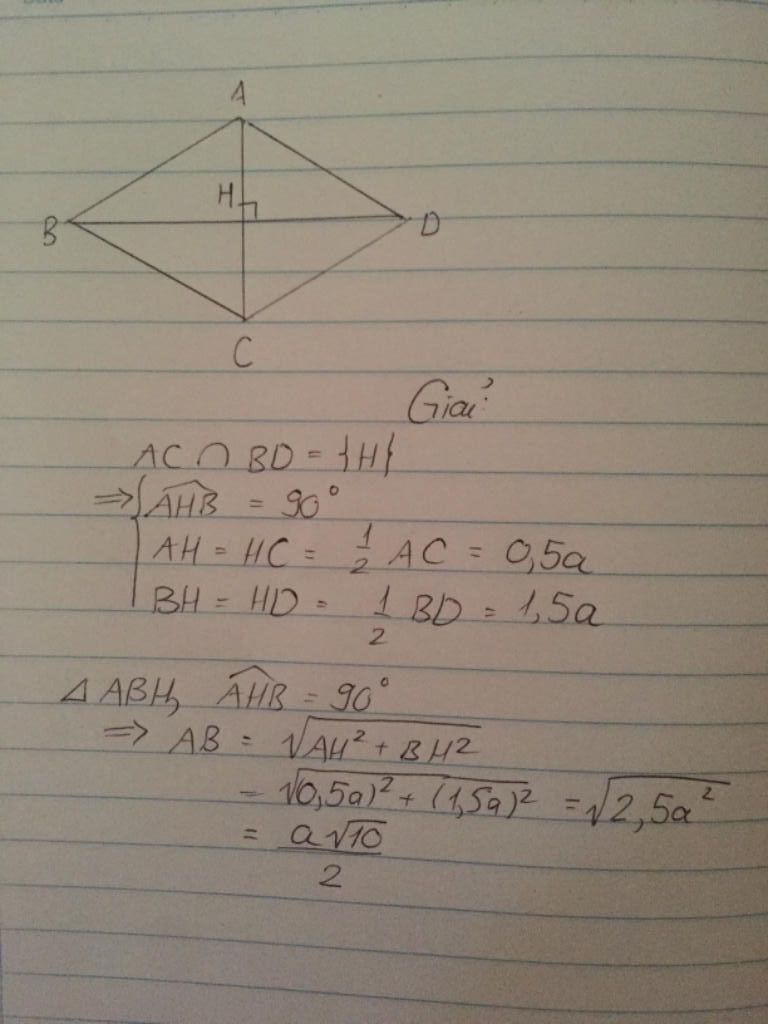 A
H
B
D
C
Giải:
AC ∩ BD = {H}
⇒ { $\widehat{AHB}$ = 90°
AH = HC = 1/2 AC = 0,5a
BH = HD = 1/2 BD = 1,5a
△ ABH, $\widehat{AHB}$ = 90°
⇒ AB = √(AH² + BH²)
= √0,5a)² + (1,5a)² = √(2,5a²)
= a√10/2